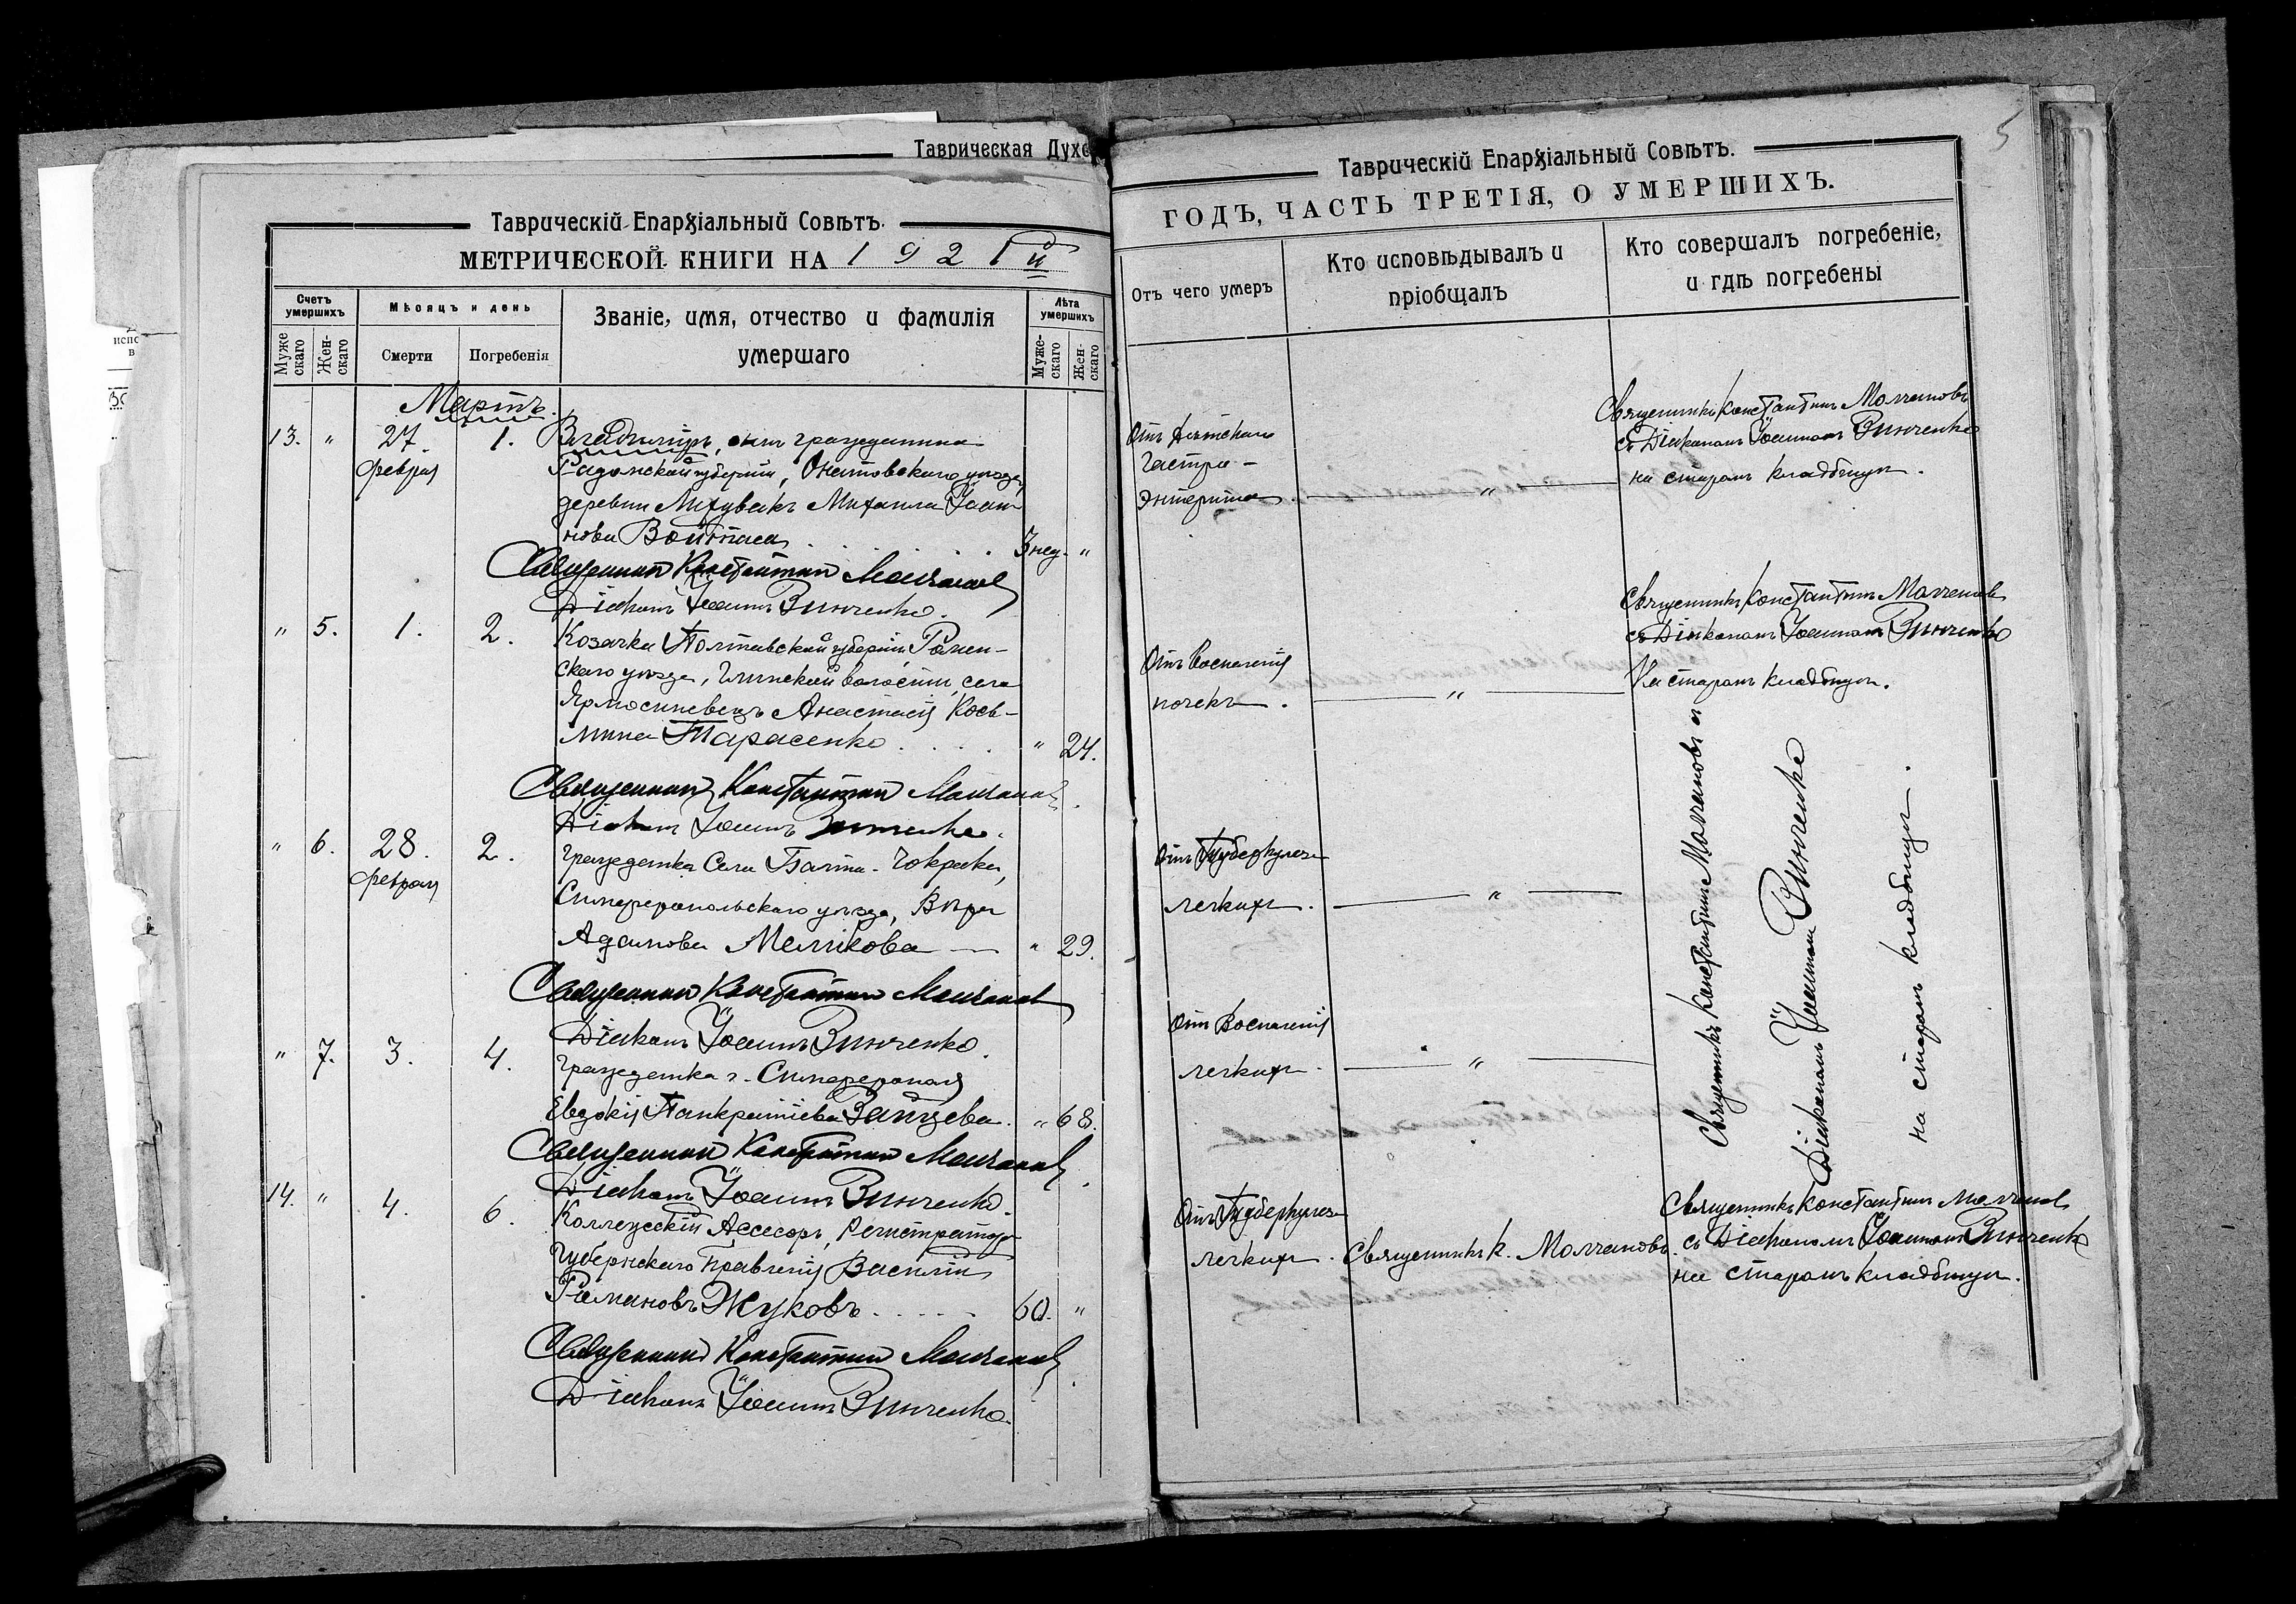 Таврическая Духо
Таврическій Епархіальный Совѣтъ.
МЕТРИЧЕСКОЙ КНИГИ НА 1921й
Счетъ умершихъ
Муже скаго
Жен- скаго
Мѣсяцъ и день
Смерти
Погребенія
Званіе, имя, отчество и фамилія
умершаго
Лѣта умершихъ
Муже- скаго
Жен- скаго
Мартъ.
13. " 27. 1. Владиміръ, сынъ гражданина
февраля Радомской губерніи, Опатовскаго уѣзда,
деревни Михаила Іоан-
нова Войтаса 3 нед. "
Священникъ Константинъ Молчановъ
Діаконъ Іоаннъ Зинченко.
" 5. 1. 2. Козачка Полтавской губерніи, Ромен-
скаго уѣзда, Глинской волости, села
Анастасія Кось-
мина Тарасенко " 24.
Священникъ Константинъ Молчановъ
Діаконъ Іоаннъ Зинченко.
" 6. 28. 2. Гражданка села -Чокрака,
февраля Симферопольскаго уѣзда, Вѣра
Адамова Меликова " 29.
Священникъ Константинъ Молчановъ
Діаконъ Іоаннъ Зинченко.
" 7. 3. 4. Гражданка г. Симферополя
Евдокія Панкратіева Зайцева. " 68.
Священникъ Константинъ Молчановъ
Діаконъ Іоаннъ Зинченко.
14. " 4. 6. Коллежскій Ассесоръ, Регистраторъ
Губернскаго Правленія Василій
Романовъ Жуковъ 60. "
Священникъ Константинъ Молчановъ
Діаконъ Іоаннъ Зинченко.
5
Таврическій Епархіальный Совѣтъ.
ГОДЪ, ЧАСТЬ ТРЕТІЯ, О УМЕРШИХЪ.
Отъ чего умеръ
Кто исповѣдывалъ и
пріобщалъ
Кто совершалъ погребеніе,
и гдѣ погребены
Отъ Дѣтскаго
Гастро-
энтерита
"
Священникъ Константинъ Молчановъ
съ Діакономъ Іоанномъ Зинченко
на старомъ кладбищѣ.
Отъ Воспаленія
почекъ.
"
Священникъ Константинъ Молчановъ
съ Діакономъ Іоанномъ Зинченко
На старомъ кладбищѣ.
Отъ Туберкулеза
легкихъ.
"
Отъ Воспаленія
легкихъ.
"
Священникъ Константинъ Молчановъ съ
Діакономъ Іоанномъ Зинченко
на старомъ кладбищѣ.
Отъ Туберкулеза
легкихъ.
Священникъ К. Молчановъ.
Священникъ Константинъ Молчановъ
съ Діакономъ Іоанномъ Зинченко
на старомъ кладбищѣ.